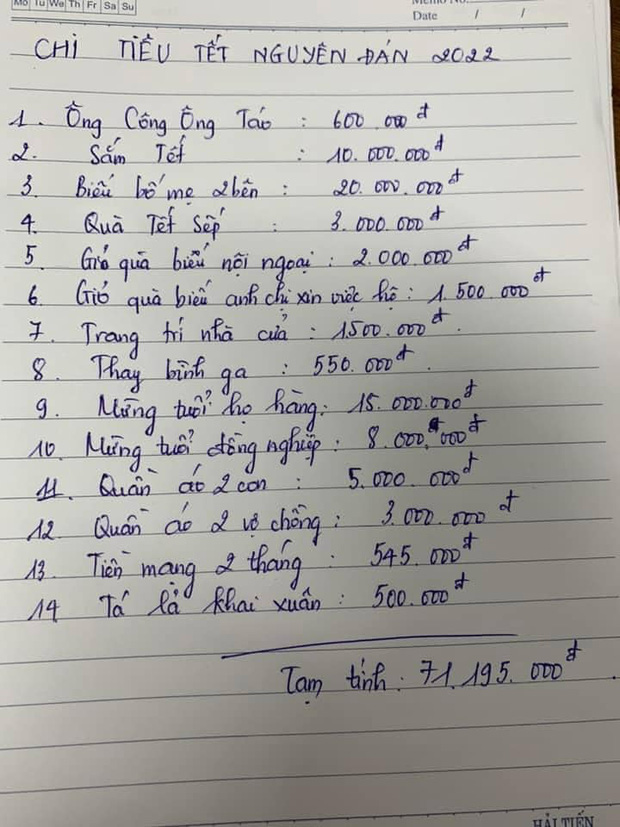 Mo Tu We Th Fr Sa Su
Memo No.
Date / /
CHI TIÊU TẾT NGUYÊN ĐÁN 2022
1. Ông Công Ông Táo : 600.000đ
2. Sắm Tết : 10.000.000đ
3. Biếu bố mẹ 2 bên : 20.000.000đ
4. Quà Tết Sếp : 3.000.000đ
5. Giỏ quà biếu nội ngoại : 2.000.000đ
6. Giỏ quà biếu anh chị xin việc hộ : 1.500.000đ
7. Trang trí nhà cửa : 1500.000đ.
8. Thay bình ga : 550.000đ.
9. Mừng tuổi họ hàng : 15.000.000đ
10. Mừng tuổi đồng nghiệp : 8.000.000đ
11. Quần áo 2 con : 5.000.000đ
12. Quần áo 2 vợ chồng : 3.000.000đ
13. Tiền mạng 2 tháng : 545.000đ
14 Tá lả khai xuân : 500.000đ
Tạm tính : 71.195.000đ.
HẢI TIẾN